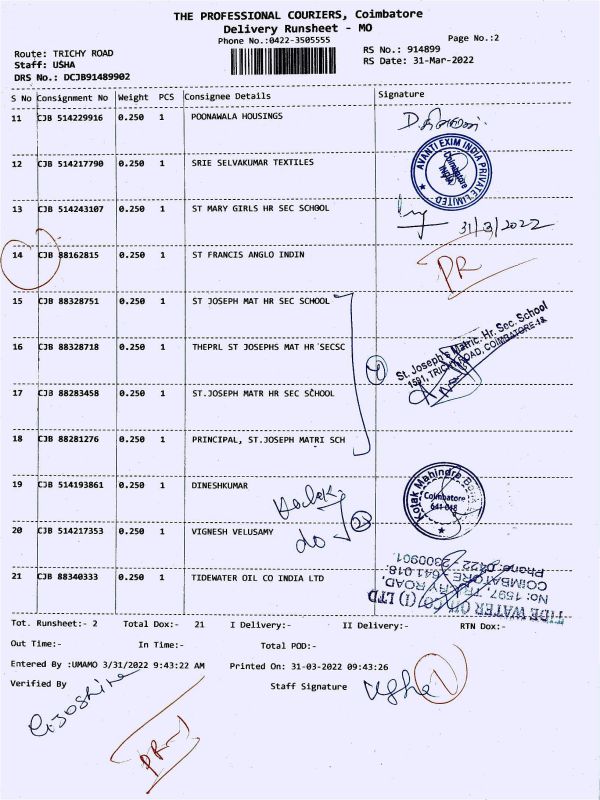 THE PROFESSIONAL COURIERS, Coimbatore
Delivery Runsheet - MO
Phone No.:0422-3505555
Page No.:2
Route: TRICHY ROAD
RS No.: 914899
Staff: USHA
RS Date: 31-Mar-2022
DRS No.: DCJB91489902
S No Consignment No Weight PCS Consignee Details Signature
11 CJB 514229916 0.250 1 POONAWALA HOUSINGS
12 CJB 514217790 0.250 1 SRIE SELVAKUMAR TEXTILES
AVANTI EXIM INDIA PRIVATE LIMITED
Coimbatore
INDIA
13 CJB 514243107 0.250 1 ST MARY GIRLS HR SEC SCHOOL
31/3/2022
14 CJB 88162815 0.250 1 ST FRANCIS ANGLO INDIN
PR
15 CJB 88328751 0.250 1 ST JOSEPH MAT HR SEC SCHOOL
16 CJB 88328718 0.250 1 THEPRL ST JOSEPHS MAT HR SECSC
4
St. Joseph's Matric. Hr. Sec. School
1591, TRICHY ROAD, COIMBATORE-18
17 CJB 88283458 0.250 1 ST.JOSEPH MATR HR SEC SCHOOL
18 CJB 88281276 0.250 1 PRINCIPAL, ST.JOSEPH MATRI SCH
19 CJB 514193861 0.250 1 DINESHKUMAR
Kotak Mahindra Bank
Coimbatore
641 018
Kotak
20 CJB 514217353 0.250 1 VIGNESH VELUSAMY
do
2
21 CJB 88340333 0.250 1 TIDEWATER OIL CO INDIA LTD
TIDE WATER OIL CO (I) LTD
NO: 1597, TRICHY ROAD,
COIMBATORE - 641 018.
Phone: 0422 - 2300901.
Tot. Runsheet:- 2 Total Dox:- 21 I Delivery:- II Delivery:- RTN Dox:-
Out Time:- In Time:- Total POD:-
Entered By :UMAMO 3/31/2022 9:43:22 AM Printed On: 31-03-2022 09:43:26
Verified By Staff Signature
Usha
1
PR-1